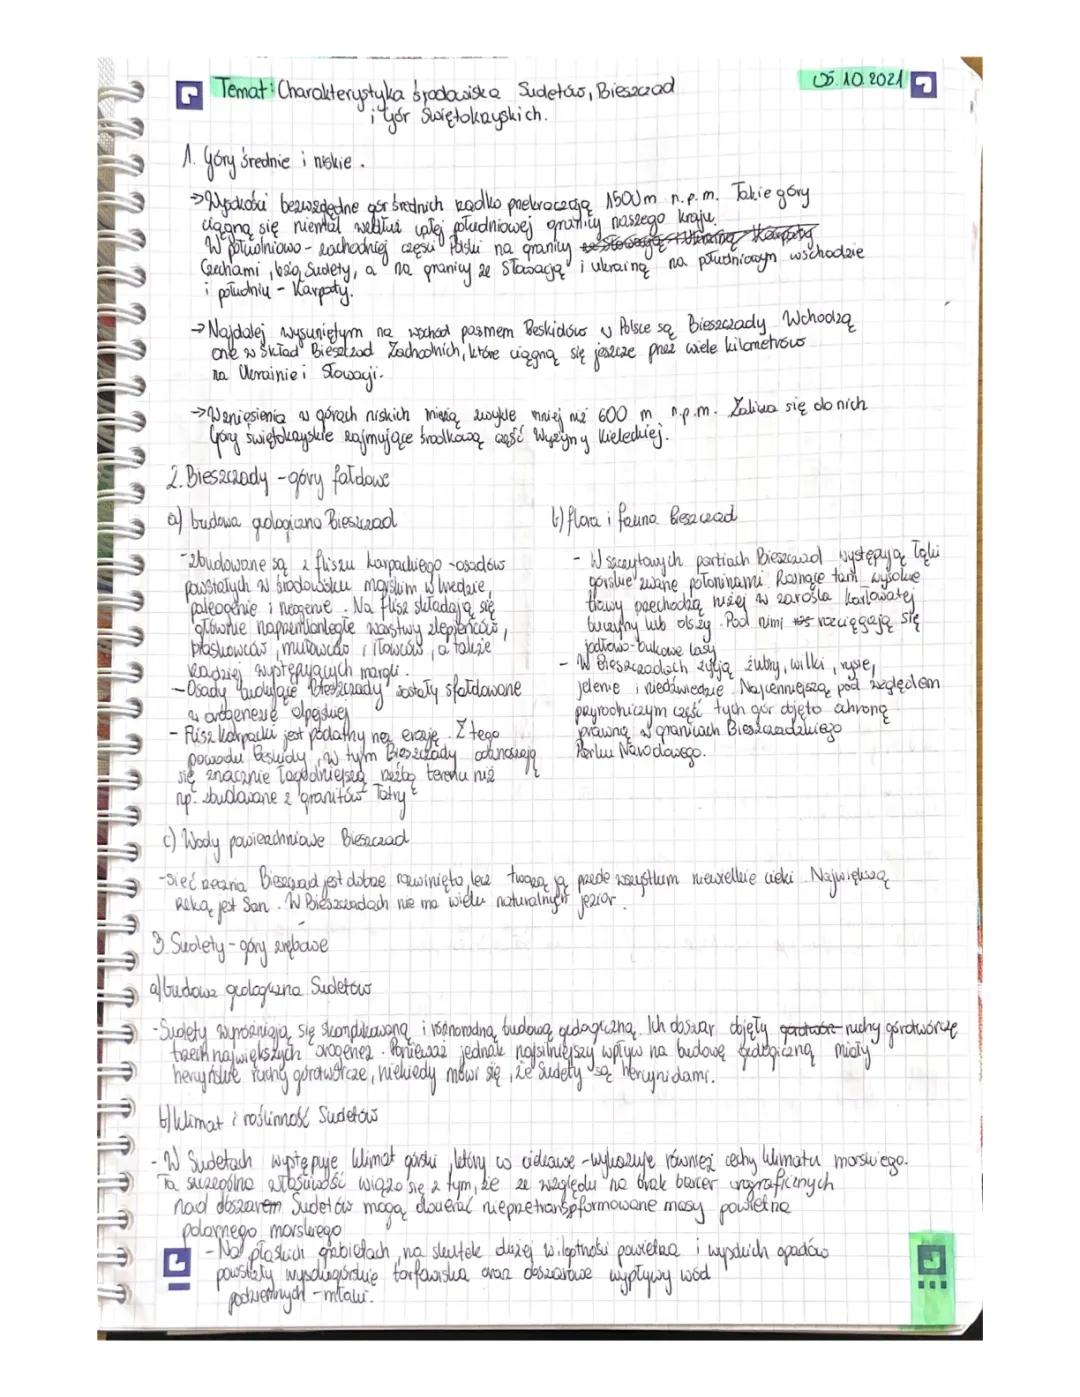 Temat: Charakterystyka środowiska Sudetów, Bieszczad
i Gór Świętokrzyskich.
05.10.2021
1. Góry średnie i niskie.
→ Wysokości bezwzględne gór średnich rzadko przekraczają 1500 m n.p.m. Takie góry
ciągną się niemal wzdłuż całej południowej granicy naszego kraju.
W południowo-zachodniej części Polski na granicy ze Słowacją i Ukrainą Karpaty
Czechami, leżą Sudety, a na granicy ze Słowacją i Ukrainą na południowym wschodzie
i południu - Karpaty.
→ Najdalej wysuniętym na wschód pasmem Beskidów w Polsce są Bieszczady. Wchodzą
one w skład Bieszczad Zachodnich, które ciągną się jeszcze przez wiele kilometrów
na Ukrainie i Słowacji.
→ Wzniesienia w górach niskich mierzą zwykle mniej niż 600 m n.p.m. Zalicza się do nich
Góry Świętokrzyskie zajmujące środkową część Wyżyny Kieleckiej.
2. Bieszczady - góry fałdowe
a) budowa geologiczna Bieszczad
- zbudowane są z fliszu karpackiego - osadów
powstałych w środowisku morskim w kredzie,
paleogenie i neogenie. Na flisz składają się
głównie naprzemianległe warstwy zlepieńców,
piaskowców, mułowców i iłowców, a także
rzadziej występujących margli.
- Osady budujące Bieszczady zostały sfałdowane
w orogenezie alpejskiej
- Flisz karpacki jest podatny na erozję. Z tego
powodu Beskidy, w tym Bieszczady odznaczają
się znacznie łagodniejszą rzeźbą terenu niż
np. zbudowane z granitów Tatry
b) flora i fauna Bieszczad
- W szczytowych partiach Bieszczad występują łąki
górskie zwane połoninami. Rosnące tam wysokie
trawy przechodzą niżej w zarośla karłowatej
buczyny lub olszy. Pod nimi rozciągają się
jodłowo-bukowe lasy
- W Bieszczadach żyją żubry, wilki, rysie,
jelenie i niedźwiedzie. Najcenniejszą pod względem
przyrodniczym część tych gór objęto ochroną
prawną w granicach Bieszczadzkiego
Parku Narodowego.
c) Wody powierzchniowe Bieszczad
- sieć rzeczna Bieszczad jest dobrze rozwinięta, lecz tworzą ją przede wszystkim niewielkie cieki. Największą
Rzeką jest San. W Bieszczadach nie ma wielu naturalnych jezior.
3. Sudety - góry zrębowe
a) budowa geologiczna Sudetów
- Sudety wyróżniają się skomplikowaną i różnorodną budową geologiczną. Ich obszar objęły ruchy górotwórcze
trzech największych orogenez. Ponieważ jednak najsilniejszy wpływ na budowę geologiczną miały
hercyńskie ruchy górotwórcze, niekiedy mówi się, że Sudety są hercynidami.
b) klimat i roślinność Sudetów
- W Sudetach występuje klimat górski, który co ciekawe - wykazuje również cechy klimatu morskiego.
Ta szczególna właściwość wiąże się z tym, że ze względu na brak barier orograficznych
nad obszarem Sudetów mogą docierać nieprzetransformowane masy powietrza
polarnego morskiego
- Na płaskich grzbietach, na skutek dużej wilgotności powietrza i wysokich opadów
powstały wysokogórskie torfowiska oraz obszarowe wypływy wód
podziemnych - młaki.